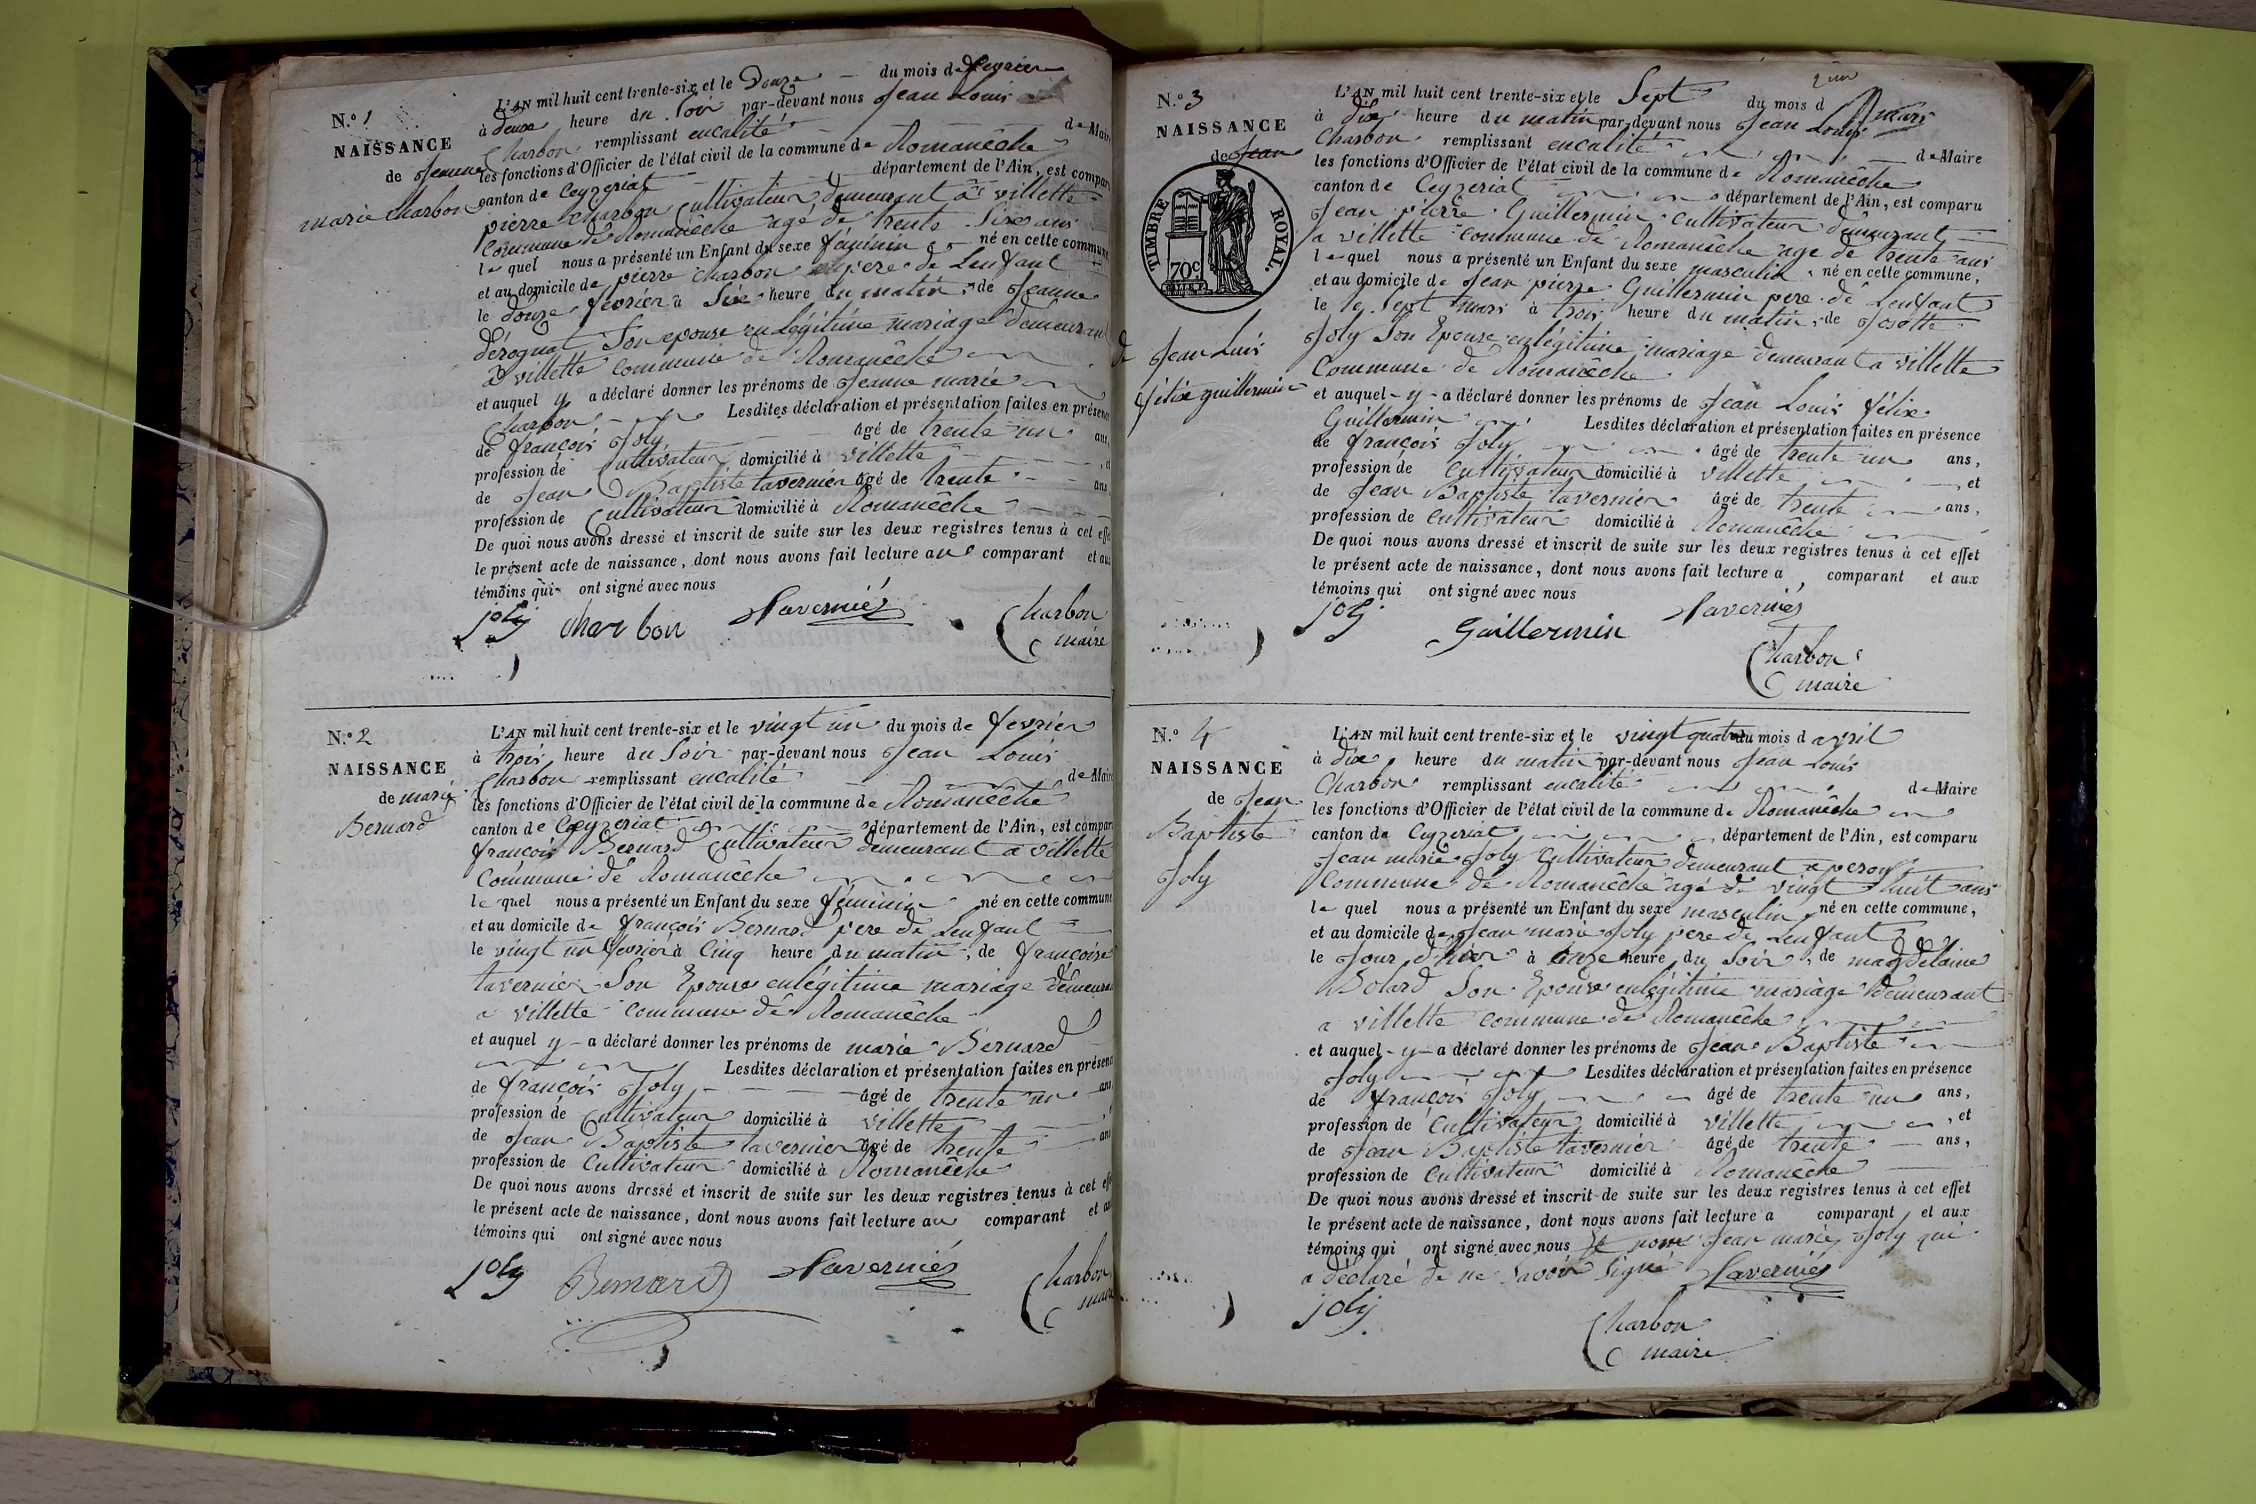 N.° 1
NAISSANCE
de Jeanne
marie Charbon
L'AN mil huit cent trente-six et le Douze du mois de fevrier
à deux heure du Soir par-devant nous Jean Louis
Charbon remplissant encalité de Maire
les fonctions d'Officier de l'état civil de la commune de Romanêche
canton de Ceyzeriat département de l'Ain, est compar
pierre Charbon Cultivateur demeurant à villette
Commune de Romanêche agé de trente Six ans
le quel nous a présenté un Enfant du sexe féminin né en cette commune
et au domicile de pierre Charbon pere de Lenfant
le douze fevrier à Six heure du matin, de Jeanne
dérognat Son epouse en Légitime mariage demeurant
à villette commune de Romanêche
et auquel y a déclaré donner les prénoms de Jeanne marie
Charbon Lesdites déclaration et présentation faites en présence
de françois Joly âgé de trente un ans,
profession de Cultivateur domicilié à villette , et
de Jean Baptiste tavernier âgé de trente ans,
profession de Cultivateur domicilié à Romanêche
De quoi nous avons dressé et inscrit de suite sur les deux registres tenus à cet effe
le présent acte de naissance, dont nous avons fait lecture au comparant et aux
témoins qui ont signé avec nous
joly charbon Tavernier Charbon
maire
N.° 2
NAISSANCE
de marie
Bernard
L'AN mil huit cent trente-six et le vingt un du mois de fevrier
à trois heure du Soir par-devant nous Jean Louis
Charbon remplissant encalité de Maire
les fonctions d'Officier de l'état civil de la commune de Romanêche
canton de Ceyzeriat département de l'Ain, est compar
françois Bernard Cultivateur demeurant à villette
Commune de Romanêche
le quel nous a présenté un Enfant du sexe féminin né en cette commune
et au domicile de françois Bernard pere de Lenfant
le vingt un fevrier à Cinq heure du matin, de françoise
tavernier Son Epouse enlégitime mariage demeurant
a villette commune de Romanêche
et auquel y a déclaré donner les prénoms de marie Bernard
Lesdites déclaration et présentation faites en présence
de françois Joly âgé de trente un ans
profession de Cultivateur domicilié à villette
de Jean Baptiste tavernier âgé de trente ans
profession de Cultivateur domicilié à Romanêche
De quoi nous avons dressé et inscrit de suite sur les deux registres tenus à cet effe
le présent acte de naissance, dont nous avons fait lecture au comparant et au
témoins qui ont signé avec nous
joly Bernard Tavernier Charbon
maire
N.° 3
NAISSANCE
de Jean
TIMBRE ROYAL.
70c
de Jean Luis
félix guillermin
L'AN mil huit cent trente-six et le Sept du mois d mars
à dix heure du matin par-devant nous Jean Louis
Charbon remplissant encalité de Maire
les fonctions d'Officier de l'état civil de la commune de Romanêche
canton de Ceyzeriat département de l'Ain, est comparu
Jean pierre Guillermin Cultivateur demeurant
a villette commune de Romanêche age de trente ans
le quel nous a présenté un Enfant du sexe masculin né en cette commune,
et au domicile de Jean pierre Guillermin pere de Lenfant
le le Sept mars à trois heure du matin, de Josotte
Joly Son Epouse enlégitime mariage demeurant a villette
Commune de Romanêche
et auquel y a déclaré donner les prénoms de Jean Louis félix
Guillermin Lesdites déclaration et présentation faites en présence
de françois Joly âgé de trente un ans,
profession de Cultivateur domicilié à villette et
de Jean Baptiste tavernier âgé de trente ans,
profession de Cultivateur domicilié à Romanêche
De quoi nous avons dressé et inscrit de suite sur les deux registres tenus à cet effet
le présent acte de naissance, dont nous avons fait lecture a , comparant et aux
témoins qui ont signé avec nous
joly Guillermin Tavernier
Charbon
maire
N.° 4
NAISSANCE
de Jean
Baptiste
Joly
L'AN mil huit cent trente-six et le vingt quatre du mois d avril
à dix heure du matin par-devant nous Jean Louis
Charbon remplissant encalité de Maire
les fonctions d'Officier de l'état civil de la commune de Romanêche
canton de Ceyzeriat département de l'Ain, est comparu
Jean marie Joly Cultivateur demeurant a
Commune de Romanêche agé de vingt huit ans
le quel nous a présenté un Enfant du sexe masculin né en cette commune,
et au domicile de Jean marie Joly pere de Lenfant
le Jour d'hier à onze heure du Soir, de magdelaine
Bolard Son Epouse enlégitime mariage demeurant
a villette commune de Romanêche
et auquel y a déclaré donner les prénoms de Jean Baptiste
Joly Lesdites déclaration et présentation faites en présence
de françois Joly âgé de trente un ans,
profession de Cultivateur domicilié à villette , et
de Jean Baptiste tavernier âgé de trente ans,
profession de Cultivateur domicilié à Romanêche
De quoi nous avons dressé et inscrit de suite sur les deux registres tenus à cet effet
le présent acte de naissance, dont nous avons fait lecture a comparant et aux
témoins qui ont signé avec nous Jean marie Joly qui
a déclaré de ne Savoir Signé Tavernier
joly Charbon
maire